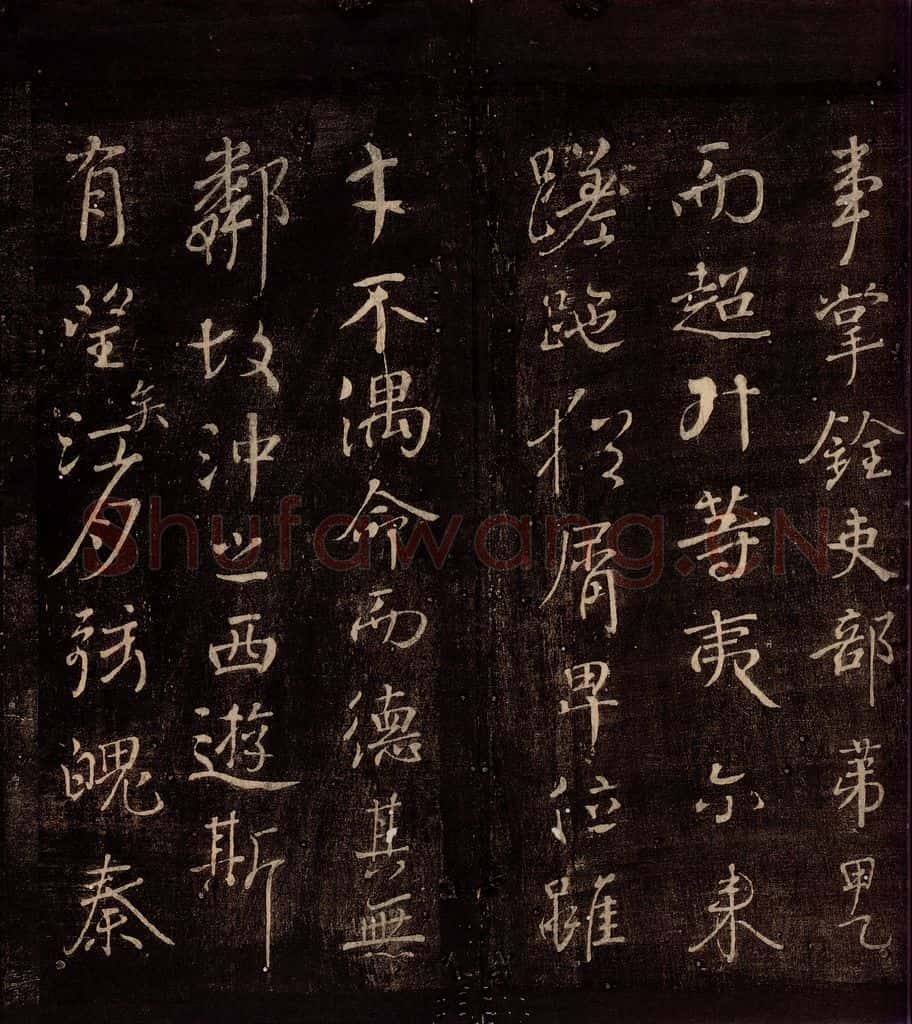 事掌銓吏部第甲乙
而超升等夷尒来
蹉跎猶屑卑位雖
才不偶命而德其無
鄰故沖之西遊斯
有望矣江月弦魄秦
Shufawang.CN